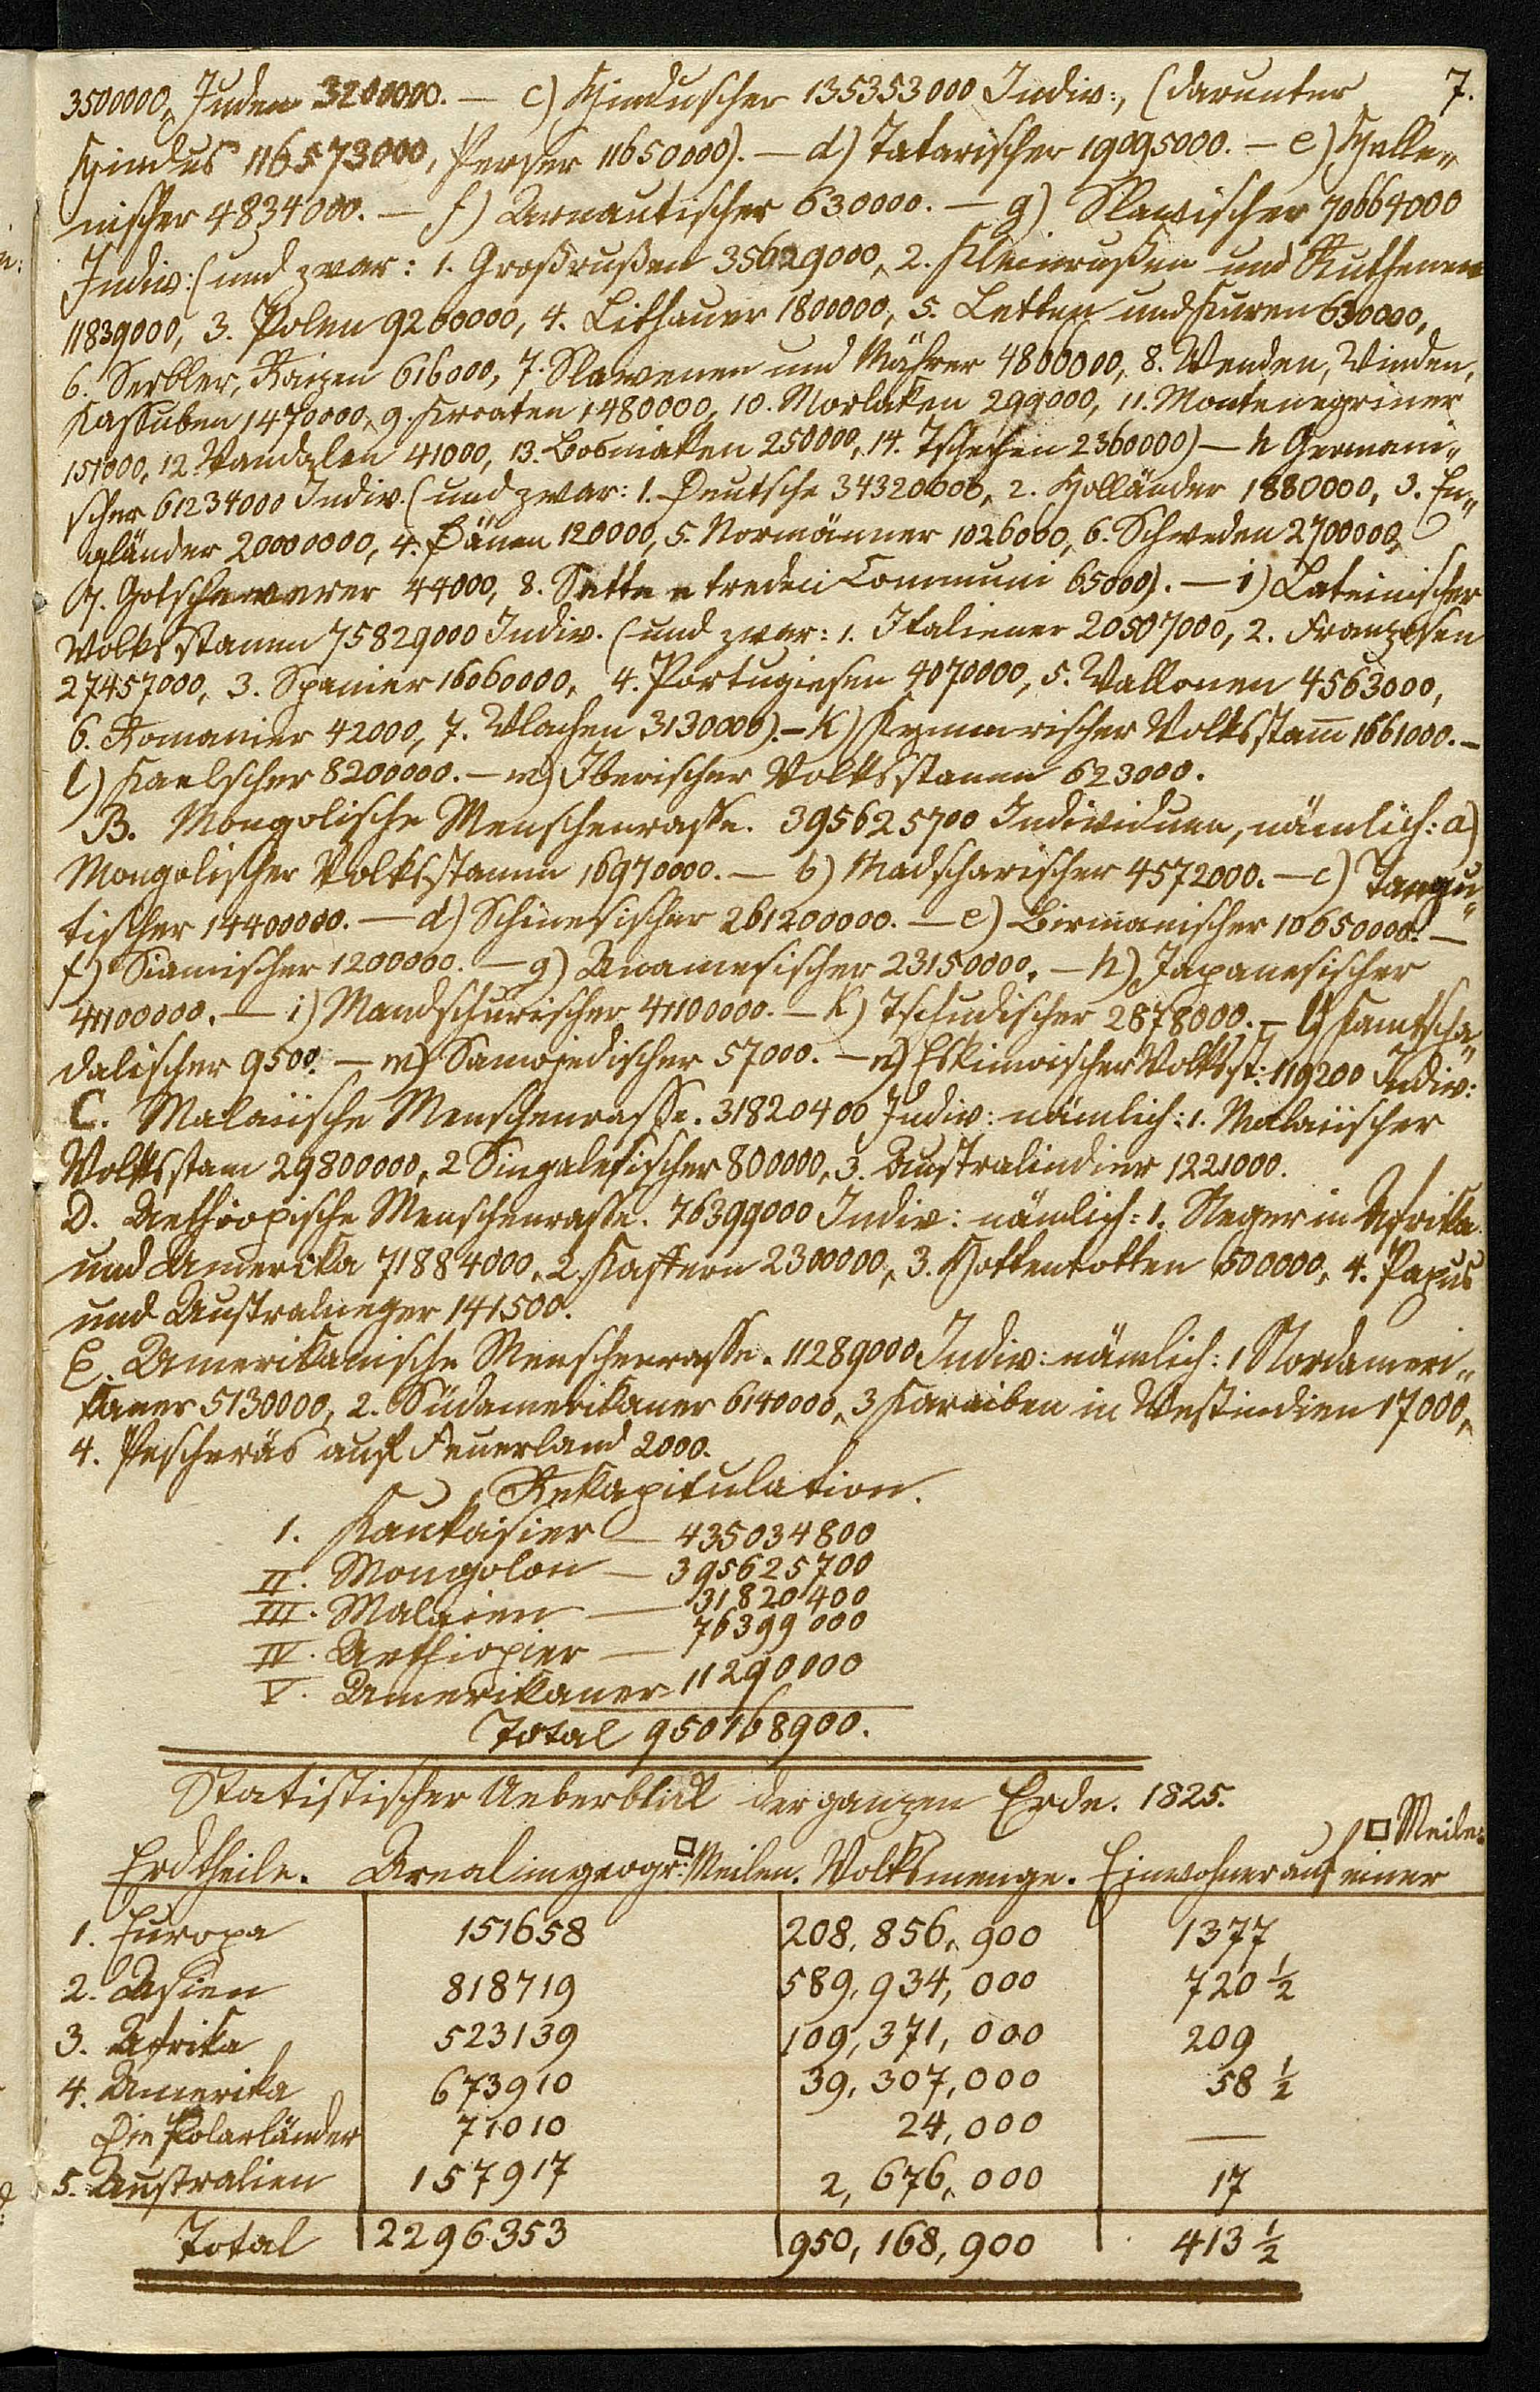 3500000, Juden 3200000. — c) Hinduscher 135353000 Indiv:, (darunter 7.
Hindus 116573000, Perser 11650000). — d) Tatarischer 19095000. — e) Helle„
nischer 4834000. — f) Arnautischer 630000. — g) Slawischer 70664000
Indiv: (und zwar: 1. Großrußen 35629000, 2. Kleinrußen und Ruthenen
11839000, 3. Polen 9200000, 4. Lithauer 1800000, 5. Letten und Kuren 630000,
6. Serbler, Raizen 616000, 7. Slawenen und Mährer 4800000, 8. Wenden, Winden,
Kassuben 1470000, 9. Kroaten 1480000, 10. Morlaken 299000, 11. Montenegriner
151000, 12. Vandalen 41000, 13. Bosniaken 250000, 14. Tschechen 2360000) — h Germani„
scher 61234000 Indiv. (und zwar: 1. Deutsche 34320000, 2. Holländer 1880000, 3. En„
gländer 20000000, 4. Dänen 120000, 5. Normänner 1026000, 6. Schweden 2700000,
7. Gotschewerer 44000, 8. Sette e tredeci Communi 65000). — i) Lateinischer
Volksstamm 75829000 Indiv. (und zwar: 1. Italiener 20507000, 2. Franzosen
27457000, 3. Spanier 16060000, 4. Portugiesen 4070000, 5. Wallonen 4563000,
6. Romanier 42000, 7. Wlachen 3130000). — k) Kymmrischer Volksstam̅ 1661000. —
l) Kaelscher 8200000. — m) Iberischer Volksstamm 623000.
B. Mongolische Menschenrasse. 395625700 Individuen, nämlich: a)
Mongolischer Volksstamm 16970000. — b) Madscharischer 4572000. — c) Tangu„
tischer 14400000. — d) Schinesischer 261200000. — e) Birmanischer 10650000. —
f) Siamischer 1200000. — g) Anamesischer 23150000. — h) Japanesischer
41100000. — i) Mandschurischer 41100000. — k) Tschudischer 2878000. — l) Kamtscha„
dalischer 9500. — m) Samojedischer 57000. — n) Eskimoischer Volksst: 119200 Indiv:
C. Malaiische Menschenrasse. 31820400 Indiv: nämlich: 1. Malaiischer
Volksstam 29800000, 2 Singalesischer 800000, 3. Australindier 1221000.
D. Aethiopische Menschenrasse. 76399000 Indiv: nämlich: 1. Neger in Afrika
und Amerika 71884000, 2. Kaffern 2300000, 3. Hottentotten 500000, 4. Papus
und Australneger 141500.
E. Amerikanische Menschenrasse. 11289000 Indiv: nämlich: 1 Nordameri„
kaner 5130000, 2. Südamerikaner 6140000, 3 Karaiben in Westindien 17000,
4. Pescheräs auf Feuerland 2000.
Rekapitulation.
1. Kaukasier — 435034800
II. Mongolen — 395625700
III. Malaien — 31820400
IV. Aethiopier — 76399000
V. Amerikaner 11290000
Total 950168900.
Statistischer Ueberblick der ganzen Erde. 1825.
Erdtheile. Areal in geogr: □ Meilen. Volksmenge. Einwohner auf einer □ Meile.
1. Europa 151658 208,856,900 1377
2. Asien 818719 589,934,000 720 ½
3. Afrika 523139 109,371,000 209
4. Amerika 673910 39,307,000 58 ½
Die Polarländer 71010 24,000 —
5. Australien 157917 2,676,000 17
Total 2296353 950,168,900 413 ½